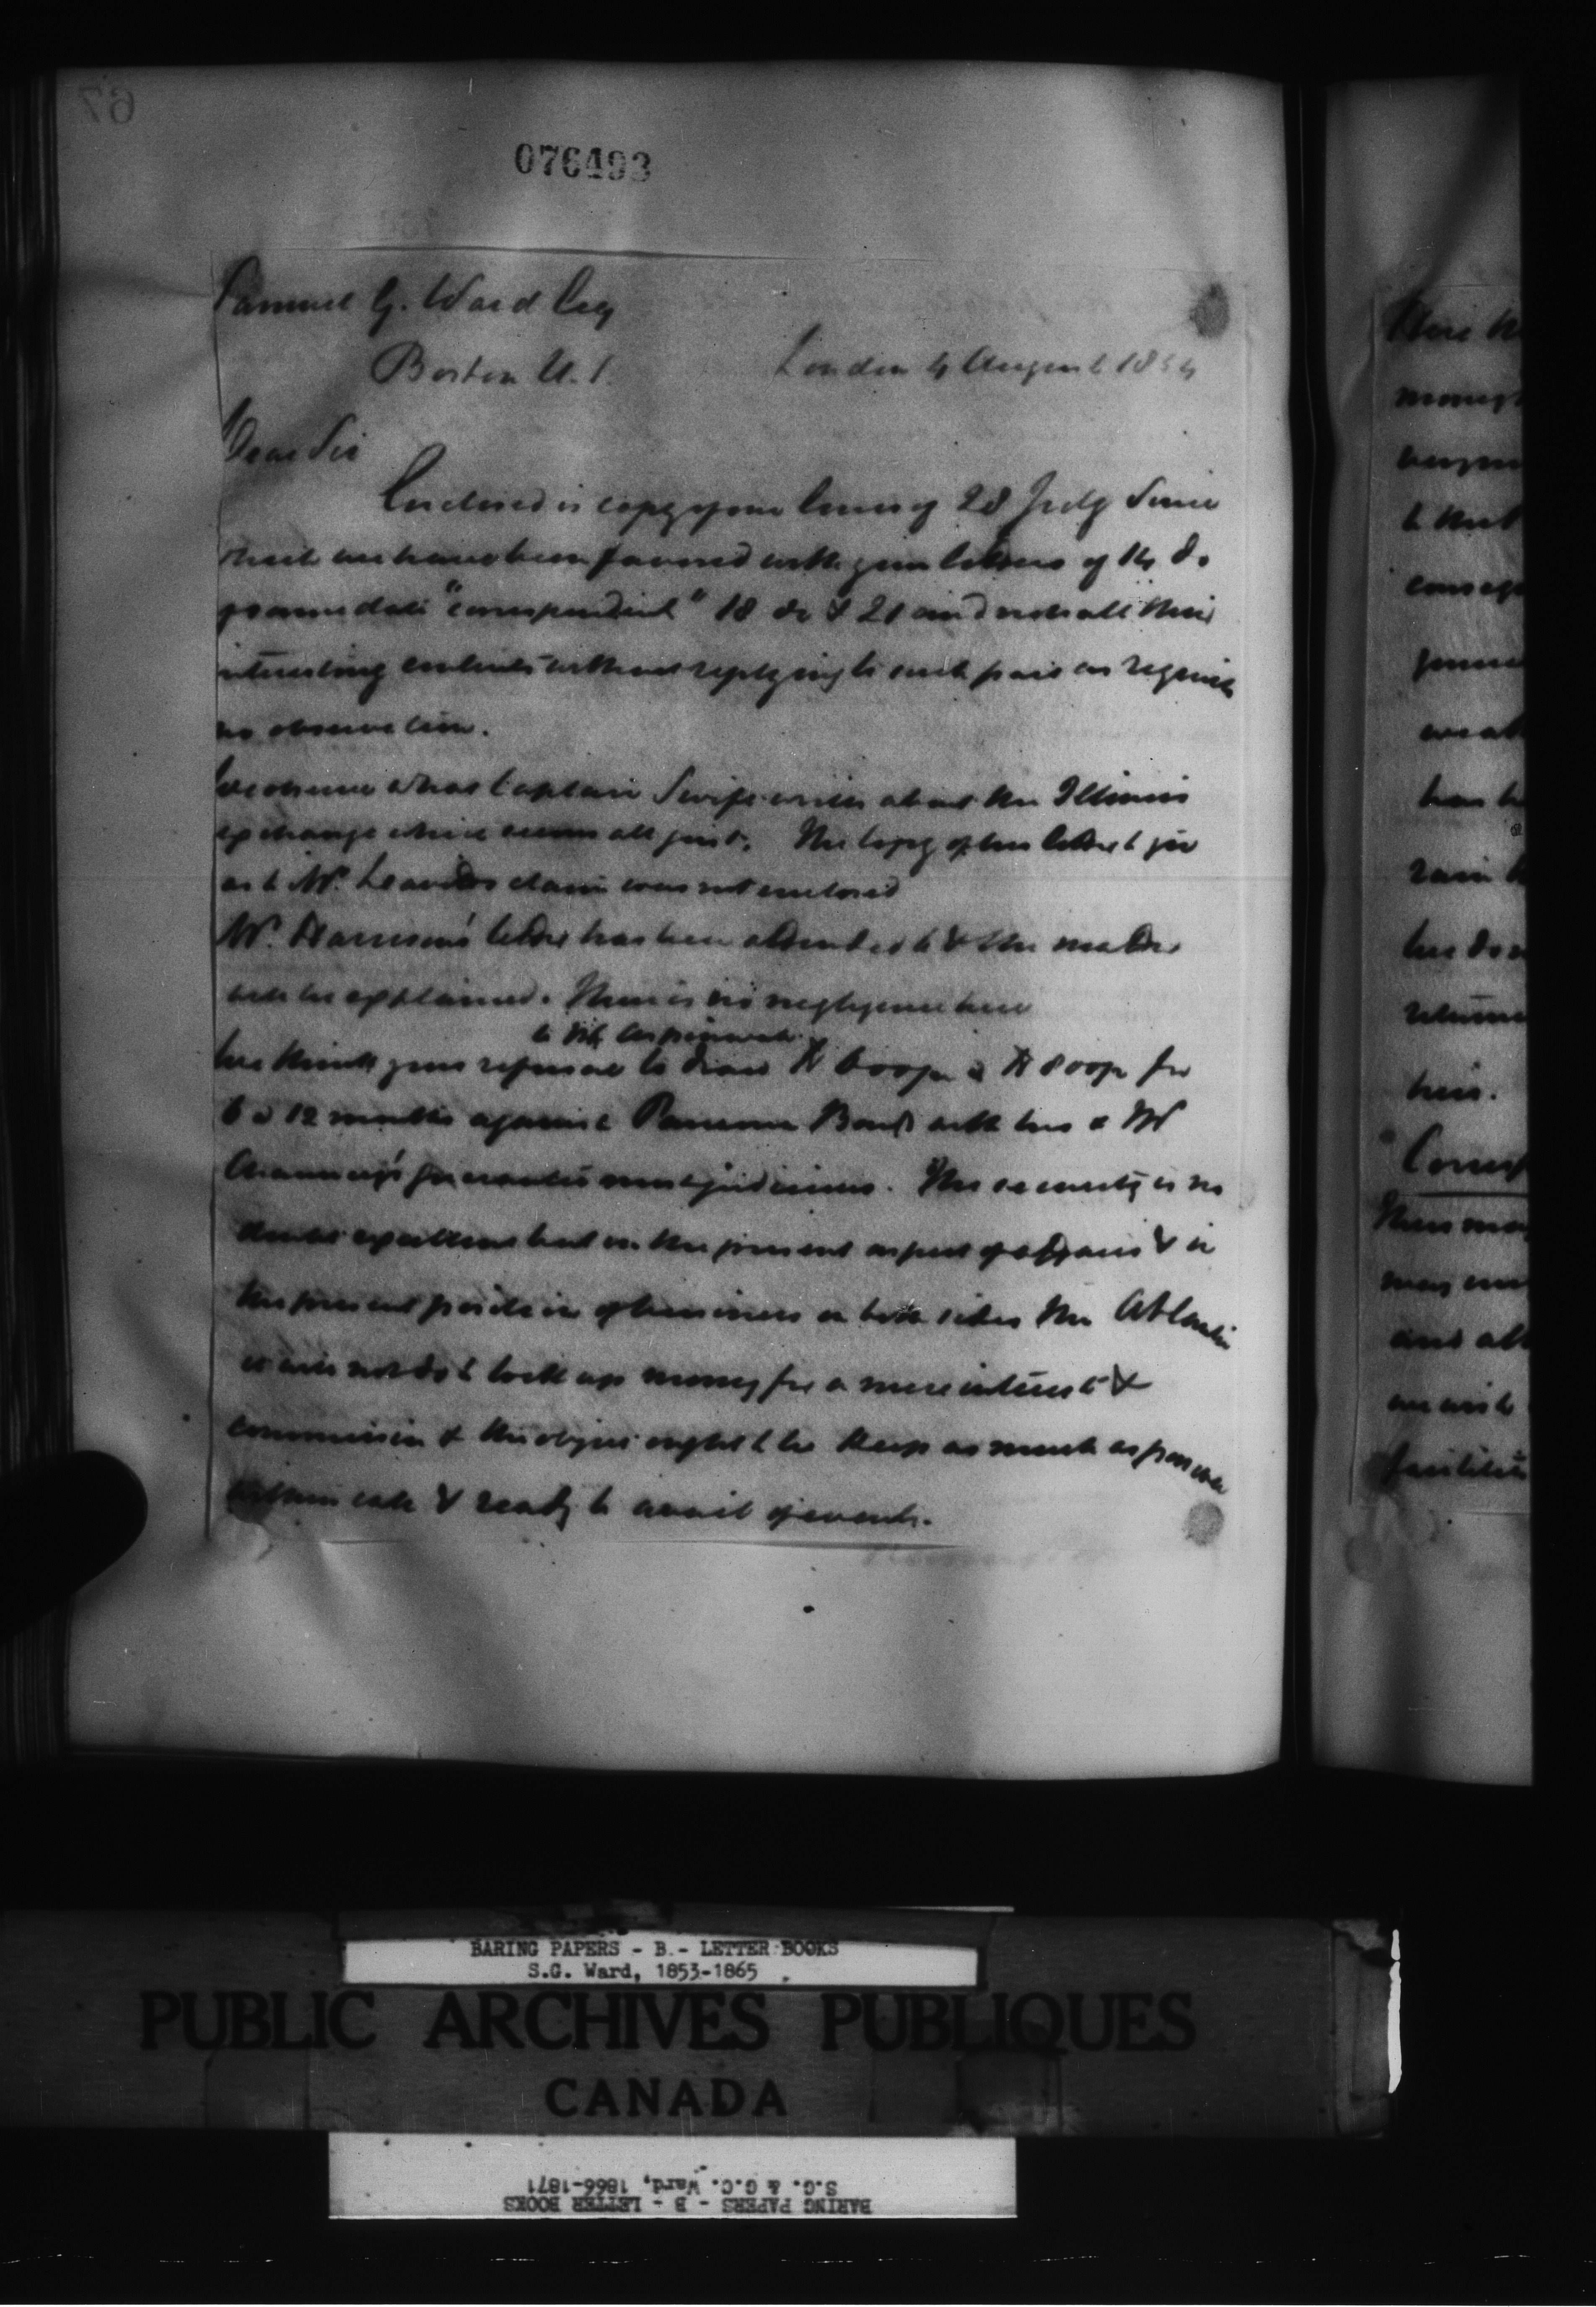 67
076493
Samuel G. Ward Esq
Boston U.S. London 4 August 1854
Dear Sir
Enclosed is copy of our lines of 28 July Since
which we have been favored with your letters of 14 do
same date "correspondent" 18 do & 21 and note all their
interesting contents without replying to such parts as require
no observation.
We observe what Captain Swift writes about the Illinois
exchange which seems all just. The copy of his letter to you
as to Mr. claim was not enclosed
Mr. Harrison's letter has been attended to & the matter
will be explained. There is no negligence here
to Mr
We think your refusal to draw for
6 or 12 months against Panama Bonds with his & Mr
guarantee most judicious. The security is no
doubt excellent but in the present aspect of affairs & in
the present position of business on both sides the Atlantic
it will not do to lock up money for a mere interest &
commission & the object ought to be keep as much as possible
within call & ready to avail of events.
There
money
to that
has
rain
his.
and
BARING PAPERS - B.- LETTER BOOKS
S.G. Ward, 1853-1865
PUBLIC ARCHIVES PUBLIQUES
CANADA
BARING PAPERS - B - LETTER BOOKS
S.G. & G.C. Ward, 1866-1871